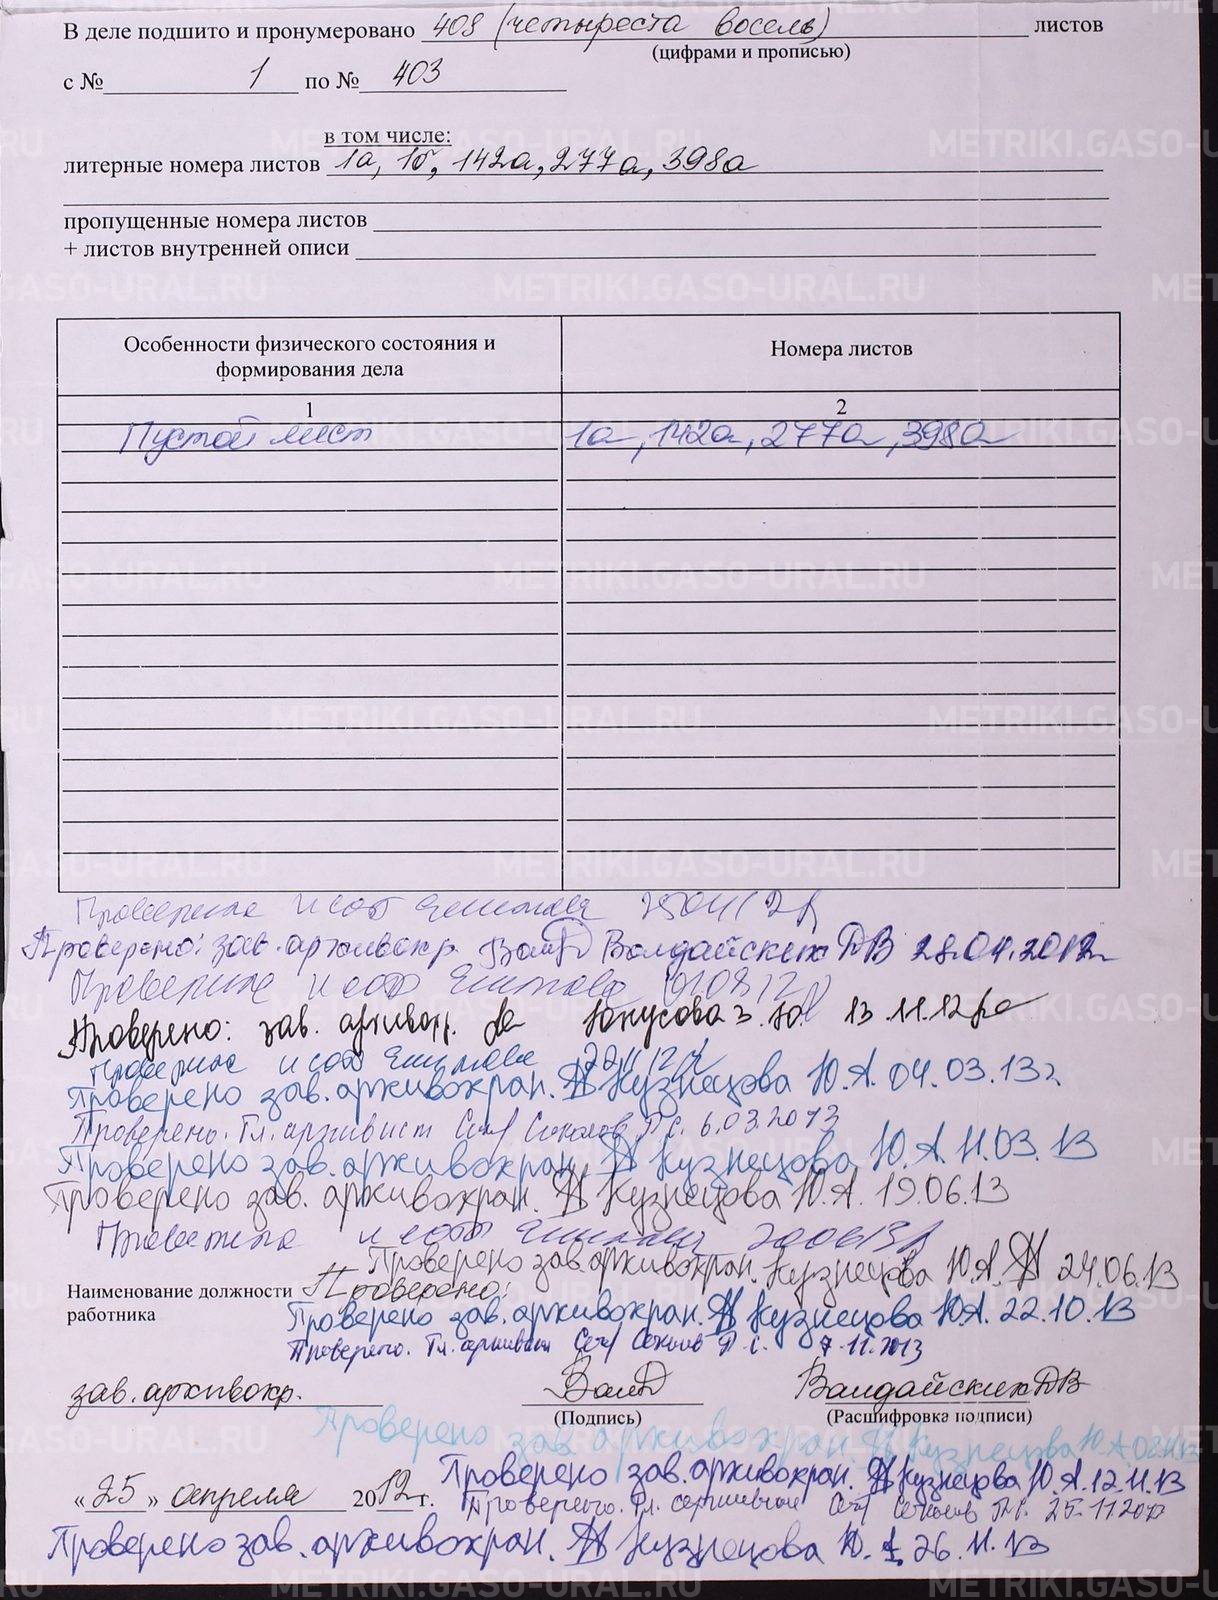 В деле подшито и пронумеровано 408 (четыреста восемь) листов
(цифрами и прописью)
с № 1 по № 403
в том числе:
литерные номера листов 1а, 1б, 142а, 277а, 398а
пропущенные номера листов
+ листов внутренней описи
Особенности физического состояния и формирования дела
Номера листов
1 2
Пустой лист 1а, 142а, 277а, 398а
Проверено
Проверено: зав. архивохр. Валдайских ДВ 28.04.2012
Проверено
Проверено: зав. архивохр. Юнусова З.Ю. 13.11.12г
Проверено
Проверено зав. архивохран. Кузнецова Ю.А. 04.03.13г
Проверено. Гл. архивист Соколов Д.С. 6.03.2013
Проверено зав. архивохран. Кузнецова Ю.А. 11.03.13
Проверено зав. архивохран. Кузнецова Ю.А. 19.06.13
Проверено
Проверено зав. архивохран. Кузнецова Ю.А. 24.06.13
Наименование должности Проверено:
работника
Проверено зав. архивохран. Кузнецова Ю.А. 22.10.13
Проверено. Гл. архивист Соколов Д.С. 7.11.2013
зав. архивохр. Валдайских ДВ
(Подпись) (Расшифровка подписи)
Проверено зав. архивохран. Кузнецова Ю.А.
Проверено зав. архивохран. Кузнецова Ю.А. 12.11.13
«25» апреля 2012 г. Проверено. Гл. архивист Соколов Д.С. 25.11.2013
Проверено зав. архивохран. Кузнецова Ю.А. 26.11.13
METRIKI.GASO-URAL.RU